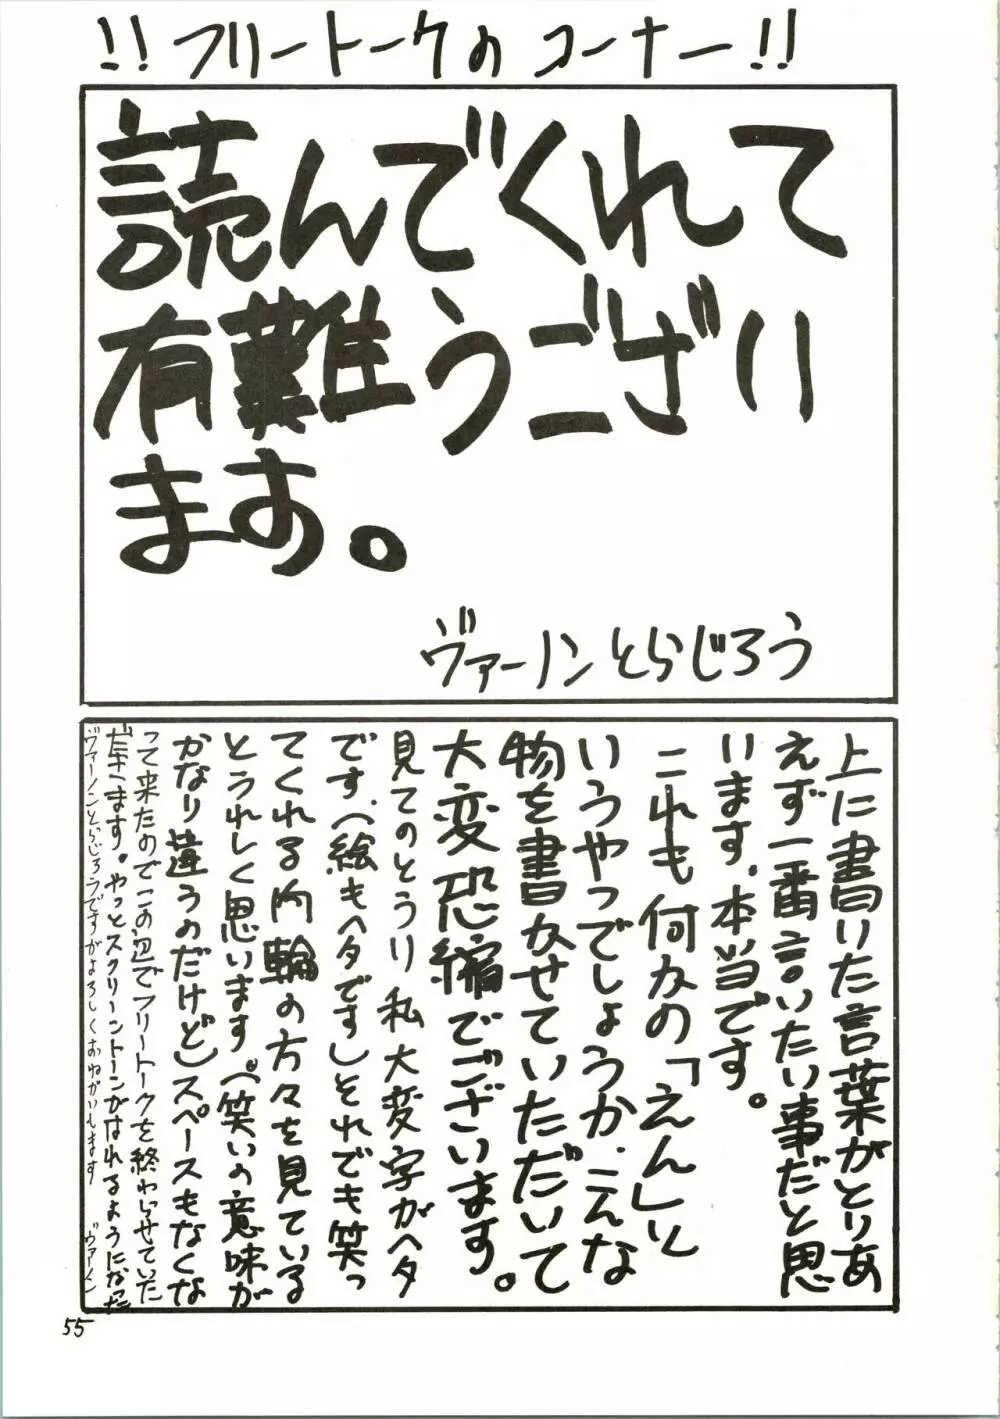 !! フリートークの コーナー!!
読んでくれて
有難うござい
ます。
ヴァーノンとらじろう
上に書いた言葉がとりあ
えず一番言いたい事だと思
います。本当です。
これも何かの「えん」と
いうやつでしょうか.こんな
物を書かせていただいて
大変恐縮でございます。
見てのとうり私大変字がヘタ
です、(絵もヘタです)それでも笑っ
てくれる内輪の方々を見ている
とうれしく思います。(笑いの意味が
かなり違うのだけど)スペースもなくな
って来たのでこの辺でフリートークを終わらせていた
だきます。やっとスクリーントーンがはれるようになった
ヴァーノンとらじろうですがよろしくおねがいします
55